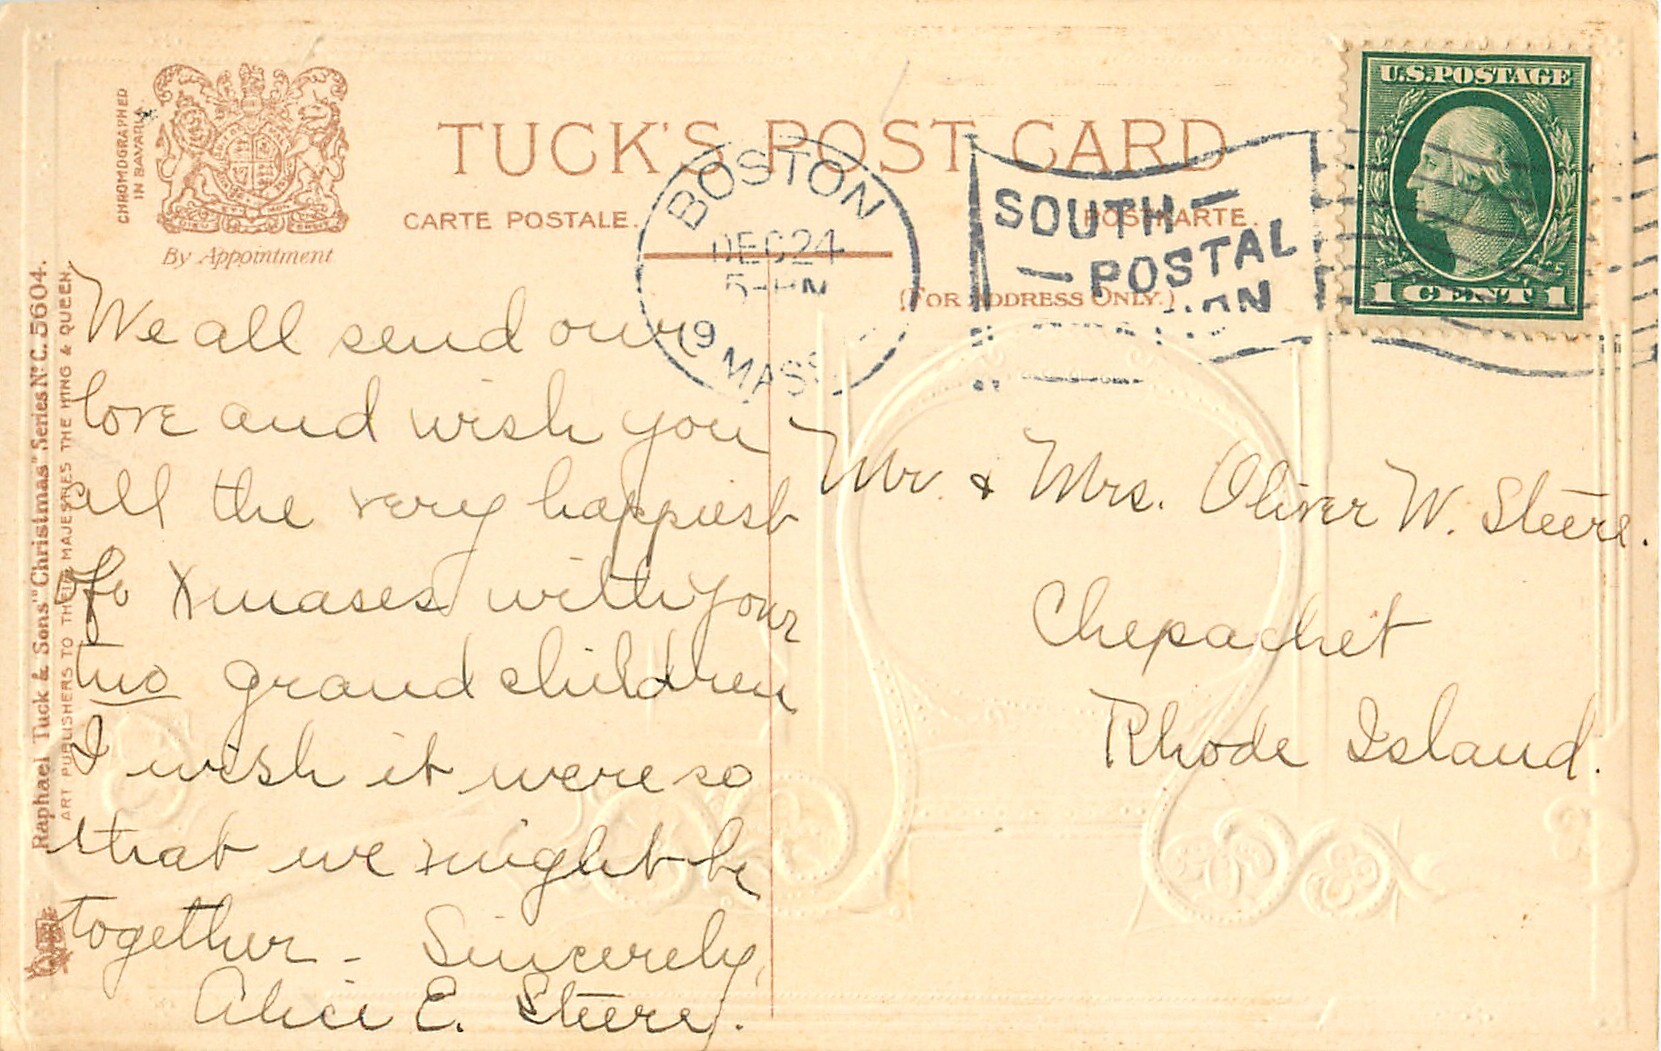 CHROMOGRAPHED
IN BAVARIA
By Appointment
TUCK'S POST CARD
CARTE POSTALE.
POSTKARTE.
(FOR ADDRESS ONLY.)
BOSTON
DEC 24
5-PM
19
MASS.
SOUTH-
-POSTAL
U.S. POSTAGE
1 CENT 1
Raphael Tuck & Sons' "Christmas" Series No. C. 5604.
ART PUBLISHERS TO THEIR MAJESTIES THE KING & QUEEN.
We all send our
love and wish you
all the very happiest
of Xmases with your
two grand children
I wish it were so
that we might be
together - Sincerely,
Alice E. Steere.
Mr. & Mrs. Oliver W. Steere.
Chepachet
Rhode Island.